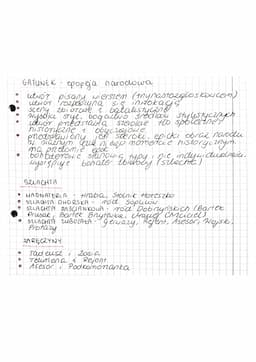 GATUNEK - epopeja narodowa
• utwór pisany wierszem (trzynastozgłoskowcem)
• utwór rozpoczyna się inwokacją
• sceny zbiorowe i batalistyczne
• wysoki styl, bogactwo środków stylistycznych
• utwór przedstawia szerokie tło społeczne,
historyczne i obyczajowe
• przedstawiony jest szeroki, epicki obraz narodu
w ważnym dla niego momencie historycznym
na przełomie epok
• bohaterowie stanowią typy, nie indywidualności,
występuje bohater zbiorowy (szlachta)
SZLACHTA
• MAGNATERIA - Hrabia, Stolnik Horeszko
• SZLACHTA DWORSKA - ród Sopliców
• SZLACHTA ZAŚCIANKOWA - ród Dobrzyńskich (Bartek
Prusak, Bartek Brzytewka, Maciej)
• SZLACHTA SŁUŻEBNA - Gerwazy, Rejent, Asesor, Wojski,
Protazy
ZARĘCZYNY
• Tadeusz i Zosia
• Telimena i Rejent
• Asesor i Podkomorzanka